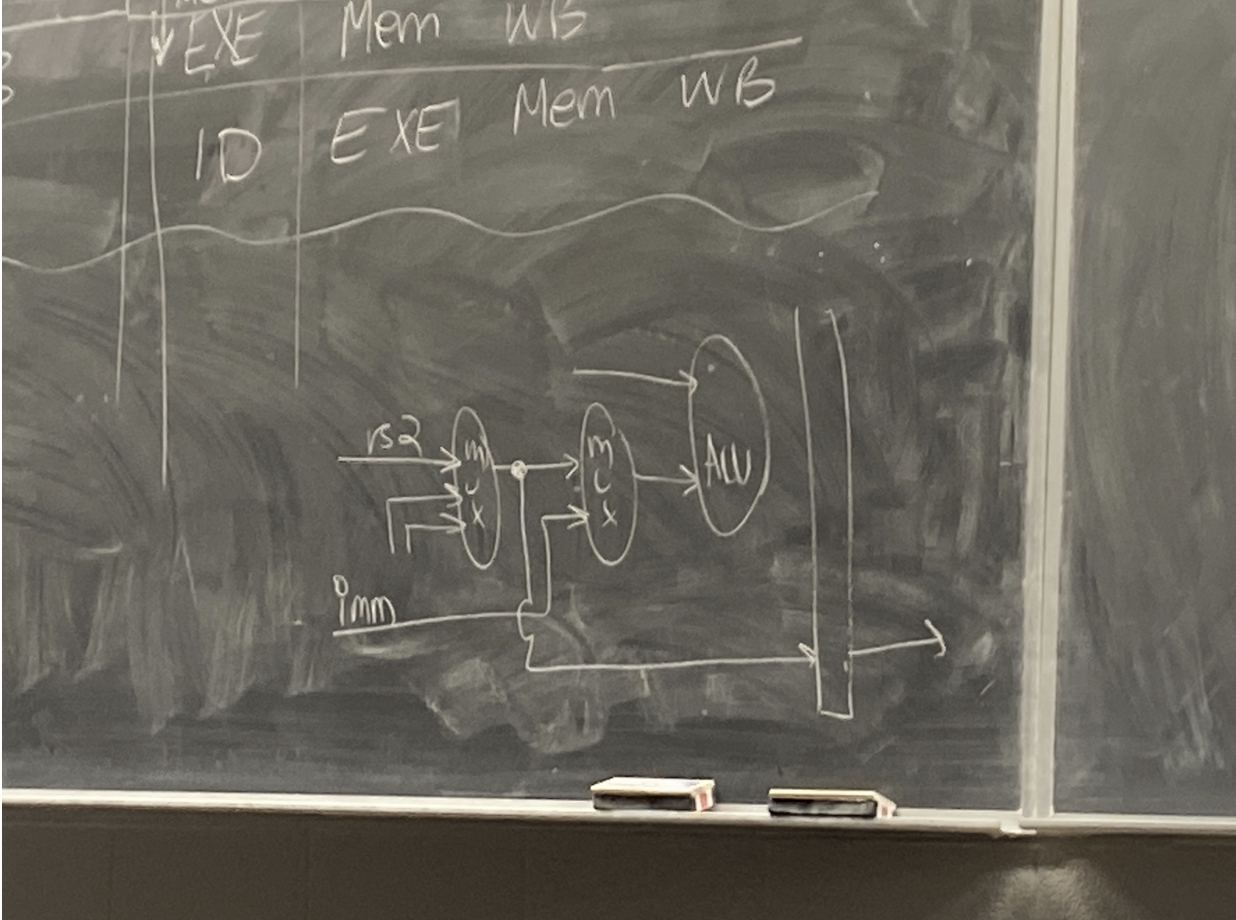 EXE Mem WB
ID EXE Mem WB
rs2
mux
mux
ALU
imm